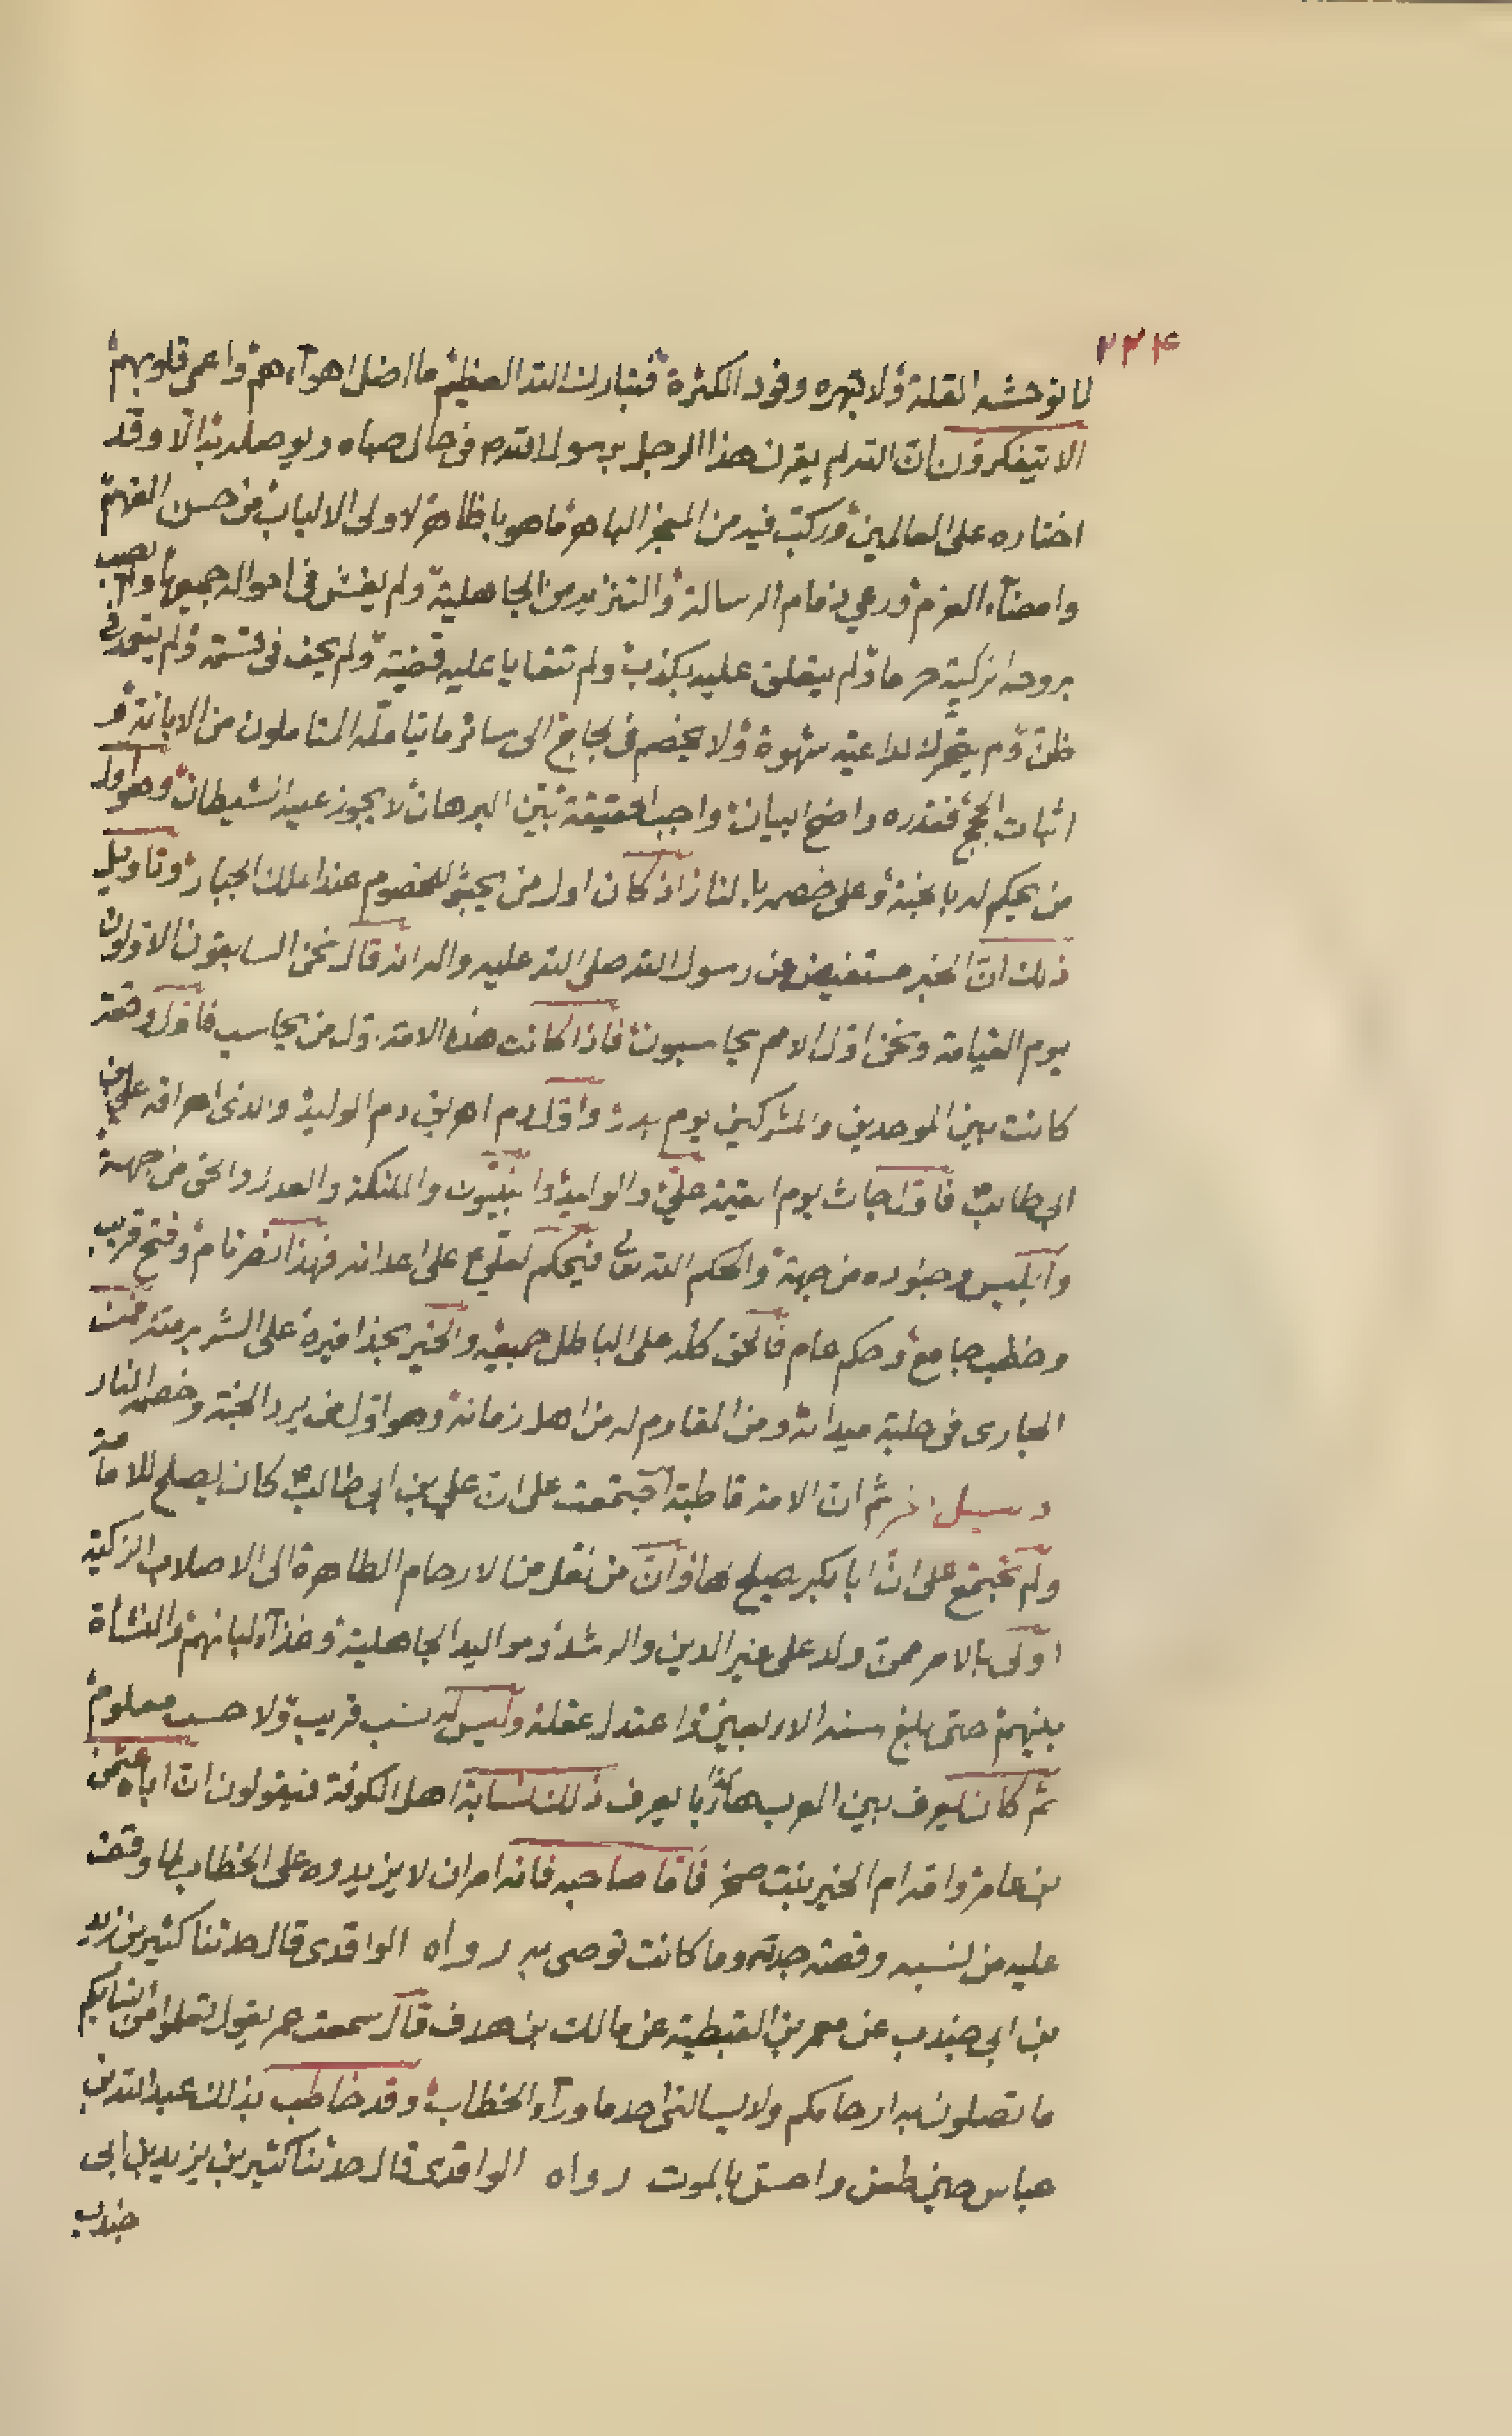 ٢٣٤
لا توحشه القلة ولا تبهره وفود الكثرة فتبارك الله العظيم ما اضل اهوآءهم واعمى قلوبهم
الا يتفكرون ان الله لم يقرن هذا الرجل برسول الله ص في حال صباه ويوصله به الا وقد
اختاره على العالمين وركب فيه من المعجز الباهر ما هو باظاهر لاولى الالباب من حسن الفهم
وامضآء العزم ورعي ذمام الرسالة والتنزيه من الجاهلية ولم يفتش في احواله جميعها ولم يصب
بروحه الزكية حرما ولم يتعلق عليه بكذب ولم تتعايا عليه قضية ولم يحف في قسمة ولم يتعمد في
ظن ولم يتحرك لداعية شهوة ولا يخصم في لجاج الى سائر ما يتامله المتاملون من الابانة و
اثبات الحجج فعذره واضح البيان واجب الحقيقة بين البرهان لا يجوز عبيد الشيطان وهو اول
من يحكم له بالجنة وعلى خصمه بالنار اذ كان اول من يجثو للخصوم عند الملك الجبار وتاويل
ذلك ان الخبر مستفيض عن رسول الله صلى الله عليه واله انه قال نحن السابقون الاولون
يوم القيامة ونحن اول الامم يحاسبون فاذا كانت هذه الامة اول من يحاسب فاول وقعة
كانت بين الموحدين والمشركين يوم بدر واول دم اهريق دم الوليد والذى اهراقه على بن
ابى طالب فاذا جاث يوم القيمة علي والوليد والنبيون والملئكة والعدل والحق من جهة
وابليس وجنوده من جهة والحكم الله تعالى فيحكم لعلي ع على اعدائه فهذا نصر تام وفتح قريب
وخطب جامع وحكم عام فالحق كله على الباطل جميعه والخير بحذافيره على الشر برمته فمن
المجارى في حلبة ميدانه ومن المقاوم له من اهل زمانه وهو اول من يرد الجنة وخصمه النار
دسيل اخر ثم ان الامة قاطبة اجتمعت على ان علي بن ابى طالب كان يصلح للامامة
ولم تجتمع على ان ابا بكر يصلح لها وان من نقل من الارحام الطاهرة الى الاصلاب الزكية
اولى بالامر ممن ولد على غير الدين والرشد ومواليد الجاهلية وغذآء لبانهم والنشأة
بينهم حتى بلغ سنه الاربعين واعتدل عقله وليس له نسب قريب ولا حسب معلوم
ثم كان يعرف بين العرب هكذا يعرف ذلك نسابة اهل الكوفة فيقولون ان اباه عثمن
بن عامر وامه ام الخير بنت صخر فاما صاحبه فانه امر ان لا يزيدوه على الخطاب لما وقف
عليه من نسبه وقصة جدته وما كانت توصى به رواه الواقدى قال حدثنا كثير بن زيد
بن ابى جندب عن معمر بن القبطية عن مالك بن هدف قال سمعت عمر يقول تعلموا من انسابكم
ما تصلون به ارحامكم ولا يسالنى احد ما ورآء الخطاب وقد خاطب بذلك عبد الله بن
عباس حين طعن واحس بالموت رواه الواقدى قال حدثنا كثير بن يزيد بن ابى
جندب